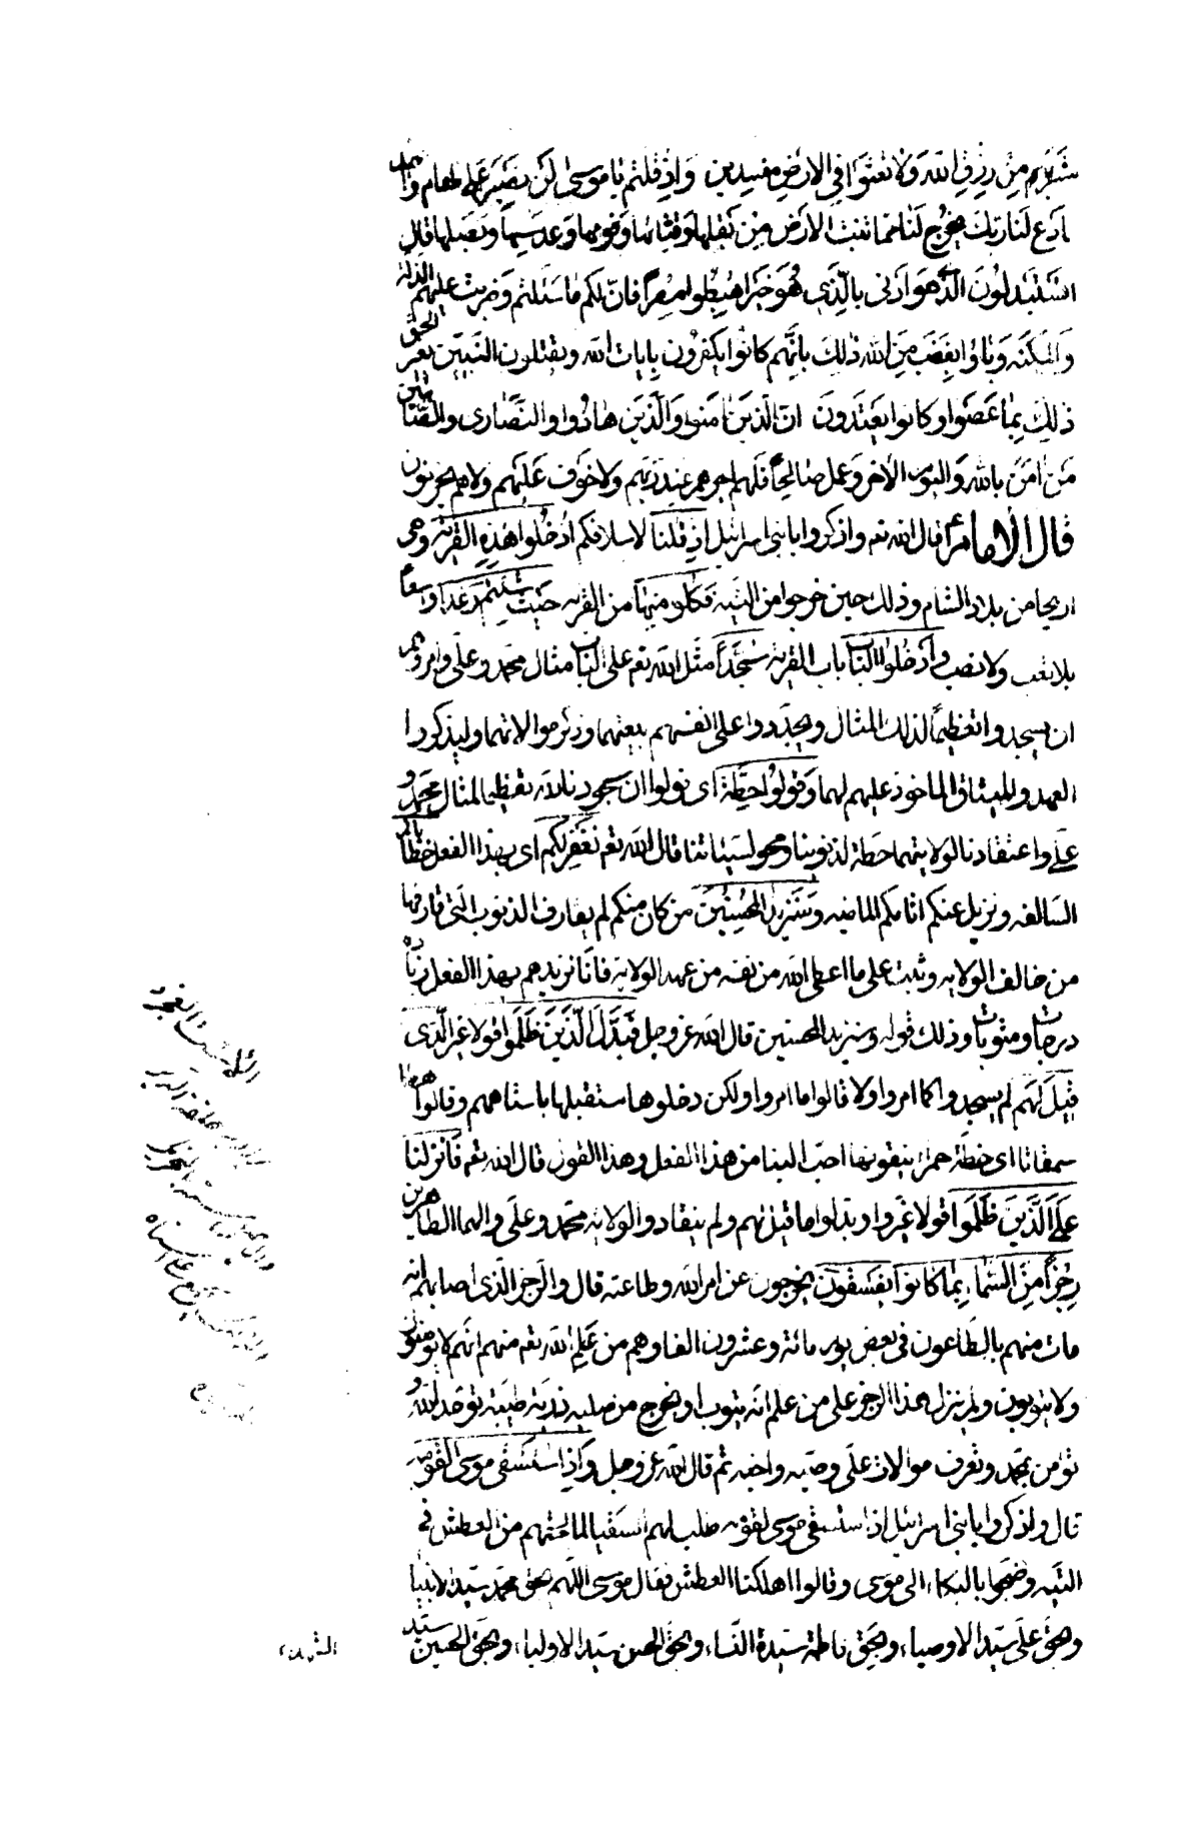 شَرَبَهم مِن رِزقِ اللهِ وَلا تَعثَوا فِي الاَرضِ مفسِدين وَاِذ قلتم يا موسى لَن نصبِرَ عَلى طعام واحد
فادع لَنا ربك يخرِج لَنا مما تنبت الاَرض مِن بَقلِها وَقِثّائها وَفومِها وَعدسِها وَبَصَلِها قال
اتَستَبدِلونَ الّذي هوَ اَدنى بالّذي هُوَ خَير اهبِطوا مِصراً فانّ لكم ما سَئَلتم وَضرِبت عليهم الذلة
وَالمَسكَنة وَباؤا بِغَضَب مِنَ الله ذلِك بانّهم كانوا يكفرون بايات الله ويقتلون النبيّين بغير الحق
ذلك بِما عَصَوا وكانوا يَعتدونَ انّ الّذينَ امَنوا وَالّذينَ هادُوا والنّصارى والصّابئين
مَن امَنَ بالله وَاليَوم الآخر وَعمل صالحاً فَلَهم اجرهم عِندَ رَبّهم ولا خَوف عَليهم ولا هم يحزنون
قال الامام ع قال الله تعم واذكروا يا بنى اسرائيل اِذ قلنا لاسلافكم ادخُلوا هذِهِ القريَة وهى
اريحا من بلاد الشام وذلك حين خرجوا من التيه فَكلوا مِنها من القرية حَيث شِئتم رَغَدا واسعاً
بلا تعب ولا نصب وادخُلوا الباب باب القرية سُجّداً مثّل الله تعم على الباب مثال محمد وعلى وامرهم
ان يسجدوا تعظيماً لذلك المثال ويجدّدوا على انفسهم بيعتهما وذكر موالاتهما وليذكروا
العهد والميثاق الماخوذ عليهم لهما وَقولوا حِطّة اى قولوا ان سجودنا لله تعظيما لمثال محمد و
على واعتقادنا لولايتهما حطة لذنوبنا ومحو لسيئاتنا قال الله تعم نَغفِر لكم اى بهذا الفعل خطاياكم
السّالفه ونزيل عنكم اثامكم الماضيه وَسَنَزيد المُحسِنينَ من كان منكم لم يقارف الذنوب التى قارفها
من خالف الولايه وثبت على ما اعطى الله من نفسه من عهد الولاية فانّا نزيدهم بهذا الفعل زيادة
درجات ومثوبات وذلك قوله وسنزيد المحسنين قال الله عز وجل فَبَدّلَ الّذينَ ظَلَموا قولا غير الّذى
قيلَ لهَم لم يسجدوا كما امروا ولا قالوا ما امروا ولكن دخلوها مستقبليها باستاههم وقالوا هطا
سمقانا اى حنطة حمراء نتقوتها احبّ الينا من هذا الفعل وهذا القول قال الله تعم فَانزلنا
عَلَى الّذينَ ظَلَموا قولا غيّروا وبدّلوا ما قيل لهم ولم ينقادوا لولاية محمّد وعلى وآلهما الطاهرين
رِجزاً مِنَ السّماء بِما كانوا يَفسُقون يخرجون عن امر الله وطاعته قال والرجز الّذى اصابهم انه
مات منهم بالطّاعون فى بعض يوم مائة وعشرون الفا وهم من عَلِم الله تعم منهم انّهم لا يؤمنون
ولا يتوبون ولم ينزل هذا الرجز على من علم انّه يتوب او يخرج من صلبه ذريّة طيّبة توحّد الله و
تؤمن بمحمد وتعرف موالاة على وصيه واخيه ثم قال الله عز وجل وَاذ استَسقى موسى لقومه
قال واذكروا يا بنى اسرائيل اذ استسقى موسى لقومه طلب لهم السقيا لما لحقهم من العطش فى
التيه وضجوا بالبكاء الى موسى وقالوا اهلكنا العطش فقال موسى اللّهم بحق محمّد سيّد الانبياء
وبحق على سيّد الاوصياء وبحَق فاطمة سيّدة النّساء وبحق الحسن سيّد الاولياء وبحَق الحسين سيّد
الشهداء